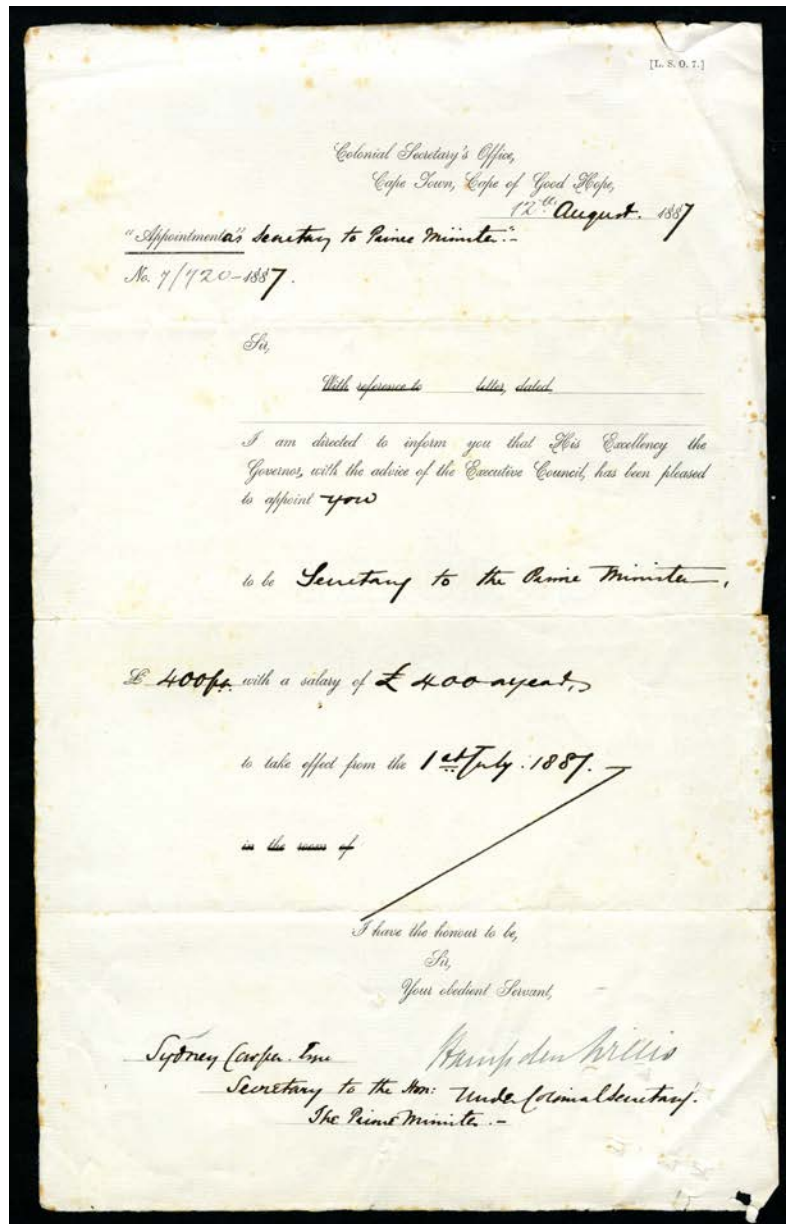 [L. S. O. 7.]
Colonial Secretary's Office,
Cape Town, Cape of Good Hope,
12th August. 1887
"Appointment as Secretary to Prime Minister."-
No. 7/720-1887.
Sir,
With reference to letter, dated
I am directed to inform you that His Excellency the
Governor, with the advice of the Executive Council, has been pleased
to appoint you
to be Secretary to the Prime Minister,
£ 400 with a salary of £ 400 a year,
to take effect from the 1st July. 1887.-
in the room of
I have the honour to be,
Sir,
Your obedient Servant,
Sydney Cowper. Esqre Hampden Willis
Secretary to the Hon: Under Colonial Secretary.
The Prime Minister.-